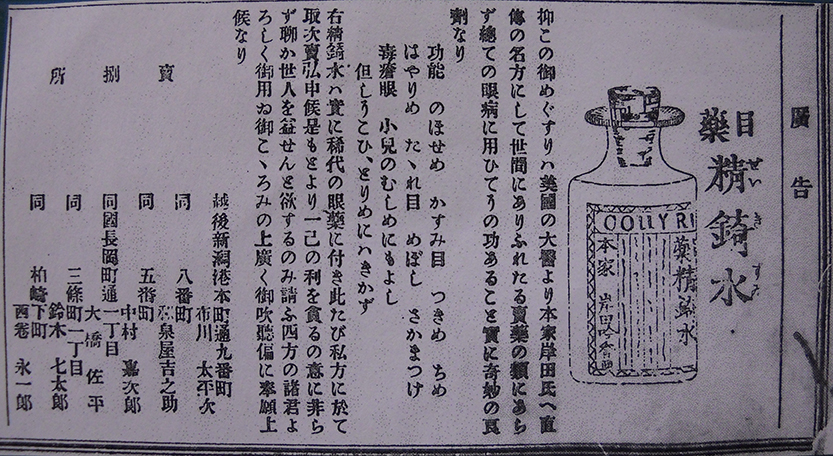 廣告
目藥 精錡水
せいきすゐ
藥精錡水
本家 岸田吟香
抑この御めぐすりハ英國の大醫より本家岸田氏へ直
傳の名方にして世間にありふれたる賣藥の類にあら
ず總ての眼病に用ひてうの功あること實に奇妙の良
劑なり
功能 のほせめ かすみ目 つきめ ちめ
はやりめ たゝれ目 めぼし さかまつげ
毒瘡眼 小兒のむしめにもよし
但しうこひ、とりめにハきかず
右精錡水ハ實に稀代の眼藥に付き此たび私方に於て
取次賣弘中候是もとより一己の利を貪るの意に非ら
ず聊か世人を益せんと欲するのみ請ふ四方の諸君よ
ろしく御用ゐ御こゝろみの上廣く御吹聽偏に奉願上
候なり
賣捌所
越後新潟港本町通九番町
布川 太平次
同 八番町
泉屋吉之助
同 五番町
中村 嘉次郎
同國長岡町通一丁目
大橋 佐平
同 三條町一丁目
鈴木 七太郎
同 柏崎下町
西巻 永一郎